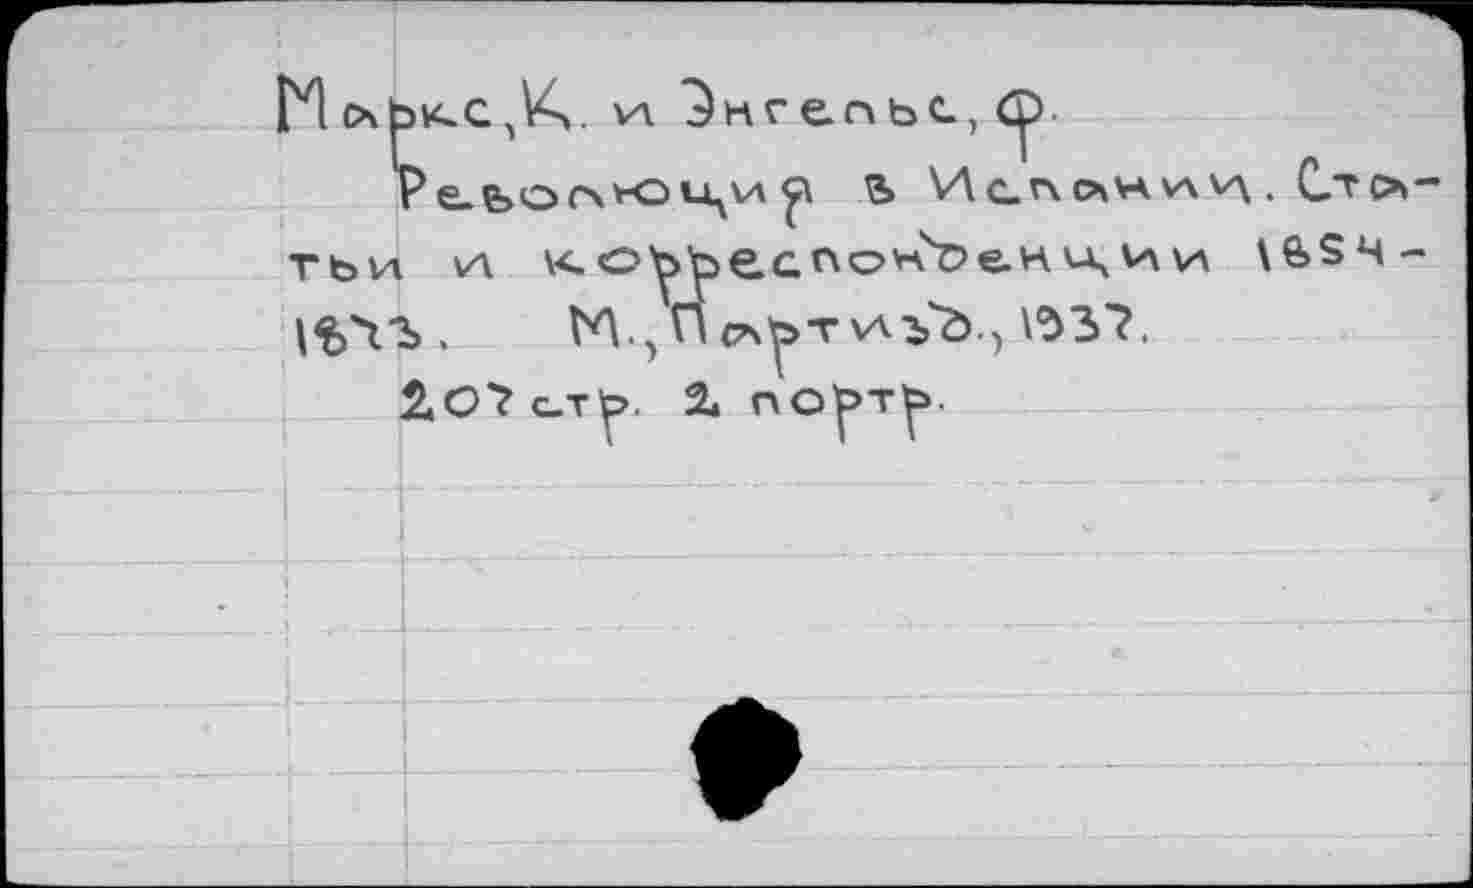 Маркс,К. и Энгельс,Ф.
Революция в Испании. Ста-
тьи и корреспонденции 1854-
1873. М.,Партизд.,1937.
207 стр. 2 портр.